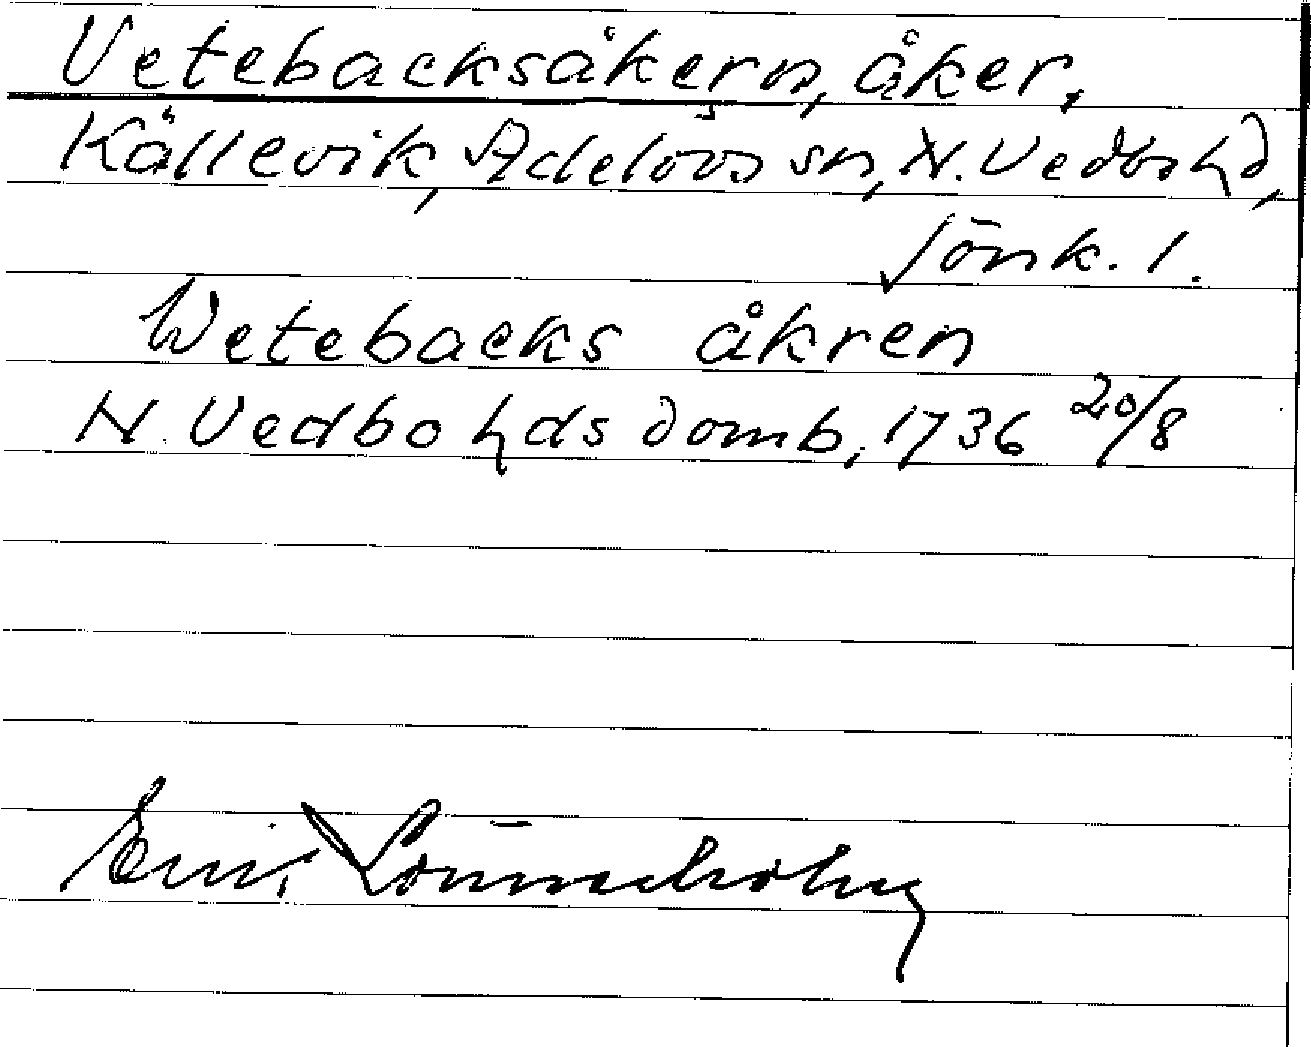 Vetebacksåkern, åker,
Källevik, Adelövs sn, N. Vedbo hd,
Jönk. l.
Wetebacks åkren
N. Vedbo hds domb, 1736 20/8